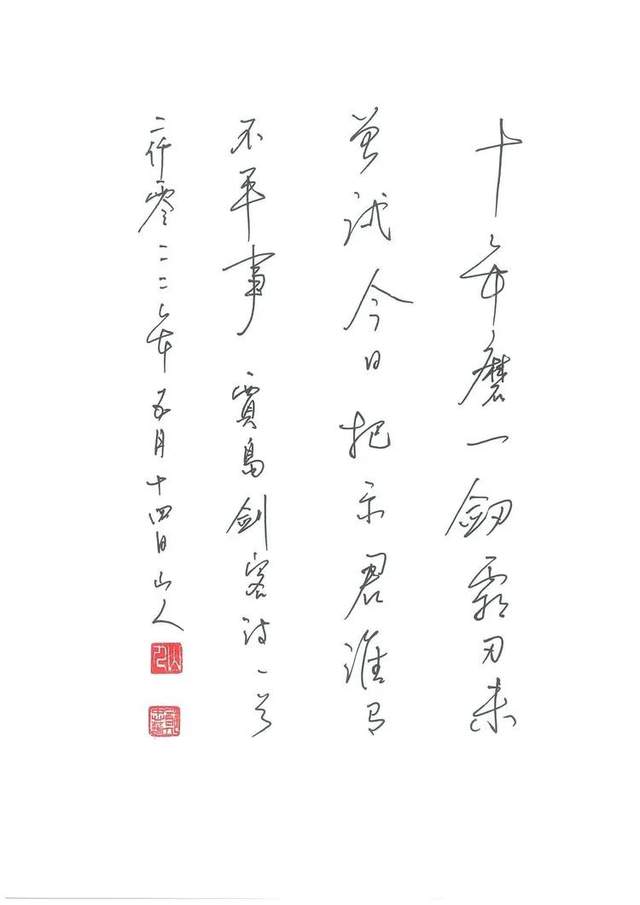 十年磨一劒霜刃未
曾試今日把示君誰有
不平事 賈島劍客詩一首
二仟零二二年五月十四日山人
山人